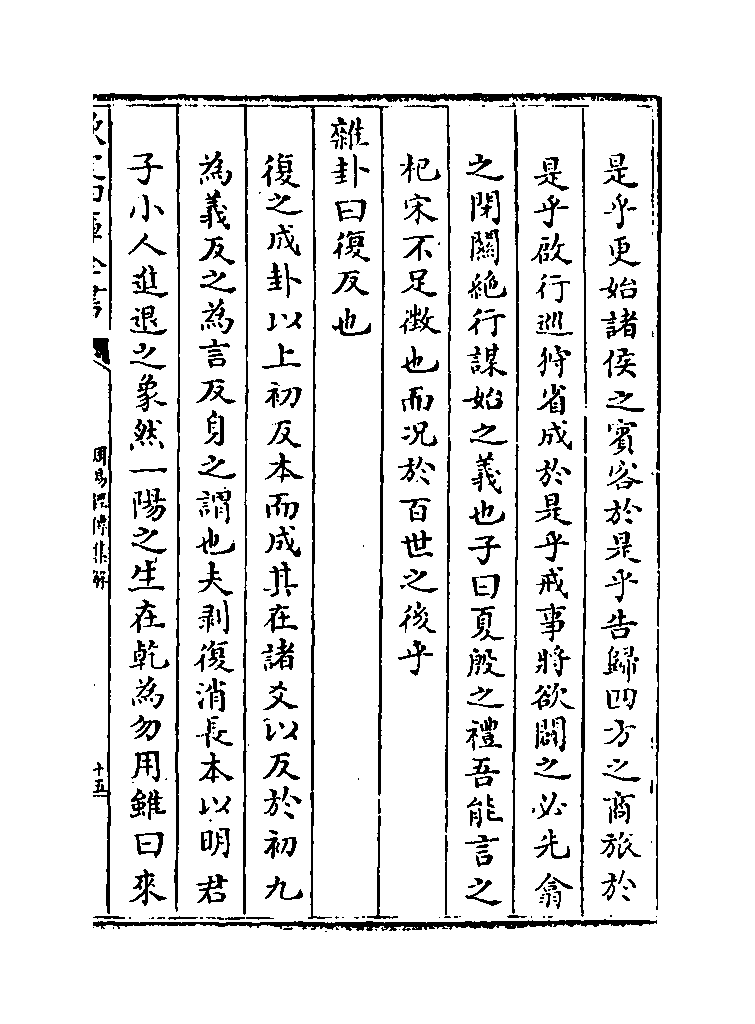 是乎更始諸侯之賓客於是乎告歸四方之商旅於
是乎啟行巡狩省成於是乎戒事將欲闢之必先翕
之閉關絶行謀始之義也子曰夏殷之禮吾能言之
杞宋不足徴也而况於百世之後乎
雜卦曰復反也
復之成卦以上初反本而成其在諸爻以反於初九
為義反之為言反身之謂也夫剥復消長本以明君
子小人進退之象然一陽之生在乾為勿用雖曰來
欽定四庫全書
周易經傳集解
十五